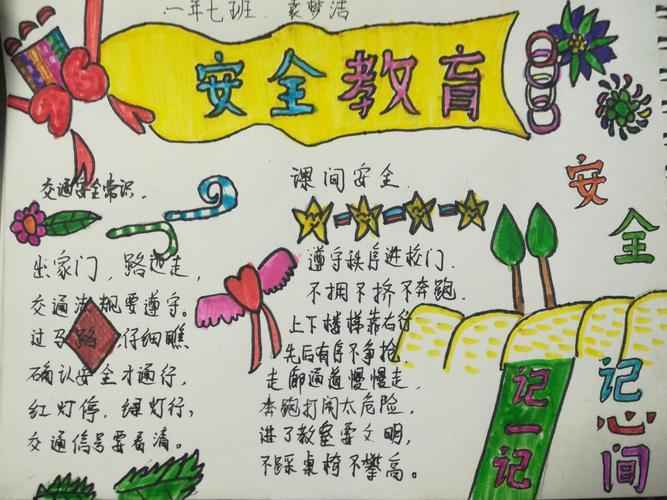 一年七班 袁梦洁
安全教育
交通安全常识。
出家门，路边走，
交通法规要遵守。
过马路 仔细瞧
确认安全才通行，
红灯停，绿灯行，
交通信号要看清。
课间安全。
遵守秩序进校门。
不拥不挤不奔跑。
上下楼梯靠右行
先后有序不争抢，
走廊通道慢慢走，
奔跑打闹太危险。
进了教室要文明，
不踩桌椅不攀高。
安全
记心间
记一记